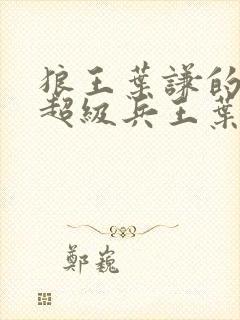 狼王葉謙的
超級兵王葉
鄭巍